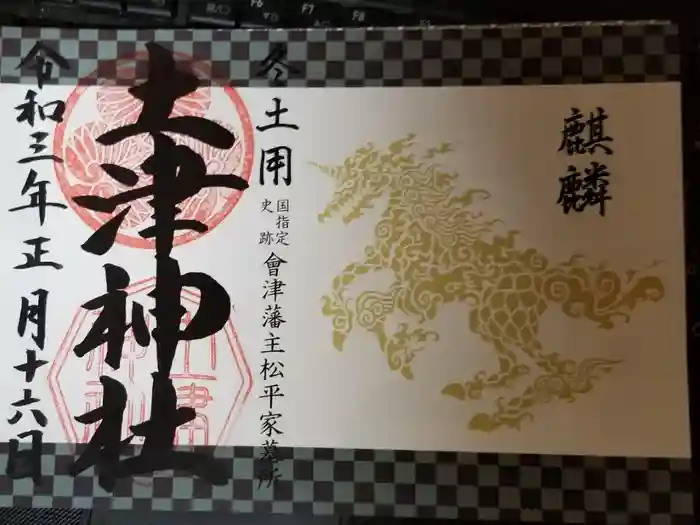 麒麟
冬土用
国指定
史跡
會津藩主松平家墓所
土津神社
令和三年正月十六日
F6
F7
F8